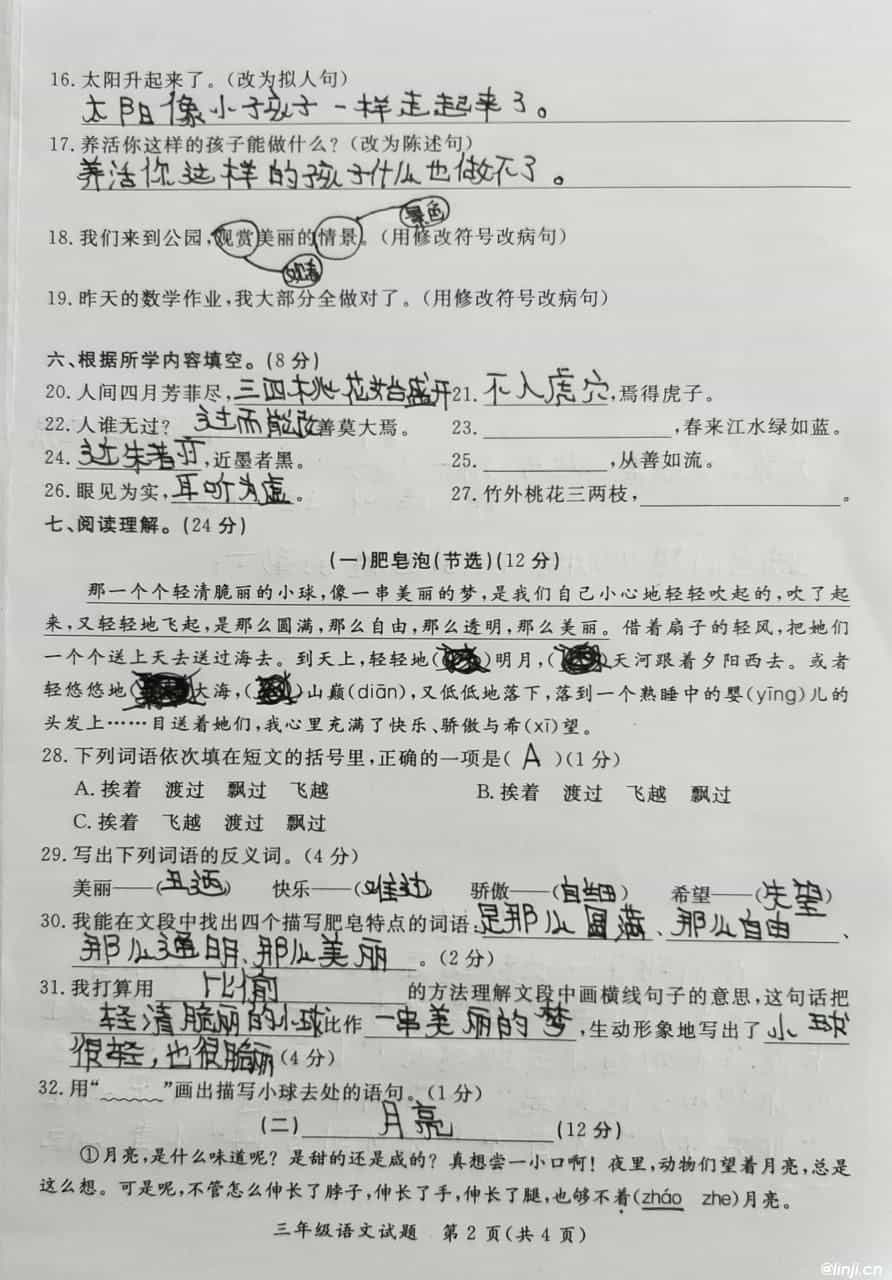 16. 太阳升起来了。(改为拟人句)
太阳像小孩子一样走起来了。
17. 养活你这样的孩子能做什么?(改为陈述句)
养活你这样的孩子什么也做不了。
景色
18. 我们来到公园,观赏美丽的情景。(用修改符号改病句)
观看
19. 昨天的数学作业,我大部分全做对了。(用修改符号改病句)
六、根据所学内容填空。(8分)
20. 人间四月芳菲尽,三四桃花始盛开 21. 不入虎穴,焉得虎子。
22. 人谁无过? 过而能改善莫大焉。 23. ,春来江水绿如蓝。
24. 近朱者赤,近墨者黑。 25. ,从善如流。
26. 眼见为实,耳听为虚。 27. 竹外桃花三两枝, 。
七、阅读理解。(24分)
(一)肥皂泡(节选)(12分)
那一个个轻清脆丽的小球,像一串美丽的梦,是我们自己小心地轻轻吹起的,吹了起
来,又轻轻地飞起,是那么圆满,那么自由,那么透明,那么美丽。借着扇子的轻风,把她们
一个个送上天去送过海去。到天上,轻轻地( )明月,( )天河跟着夕阳西去。或者
轻悠悠地( )大海,( )山巅(diān),又低低地落下,落到一个熟睡中的婴(yīng)儿的
头发上……目送着她们,我心里充满了快乐、骄傲与希(xī)望。
28. 下列词语依次填在短文的括号里,正确的一项是( A )(1分)
A. 挨着 渡过 飘过 飞越 B. 挨着 渡过 飞越 飘过
C. 挨着 飞越 渡过 飘过
29. 写出下列词语的反义词。(4分)
美丽——(丑陋) 快乐——(难过) 骄傲——( ) 希望——(失望)
30. 我能在文段中找出四个描写肥皂特点的词语:是那么圆满、那么自由、
那么透明、那么美丽。(2分)
31. 我打算用 比偷 的方法理解文段中画横线句子的意思,这句话把
轻清脆丽的小球比作 一串美丽的梦,生动形象地写出了 小球
很轻,也很脆丽(4分)
32. 用“﹏﹏﹏”画出描写小球去处的语句。(1分)
(二) 月亮 (12分)
①月亮,是什么味道呢?是甜的还是咸的?真想尝一小口啊!夜里,动物们望着月亮,总是
这么想。可是呢,不管怎么伸长了脖子,伸长了手,伸长了腿,也够不着(zháo zhe)月亮。
三年级语文试题 第2页(共4页)
@linji.cn